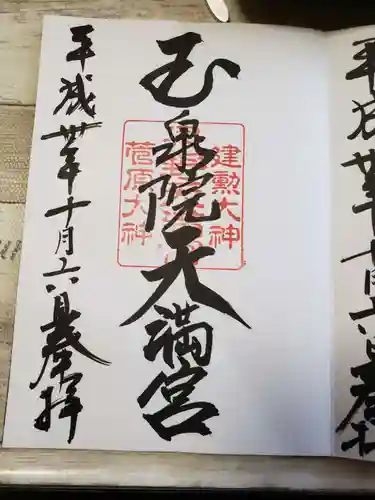 玉泉院天満宮
建勲大神
菅原大神
平成卅年十月六日奉拝
平成卅年十月六日奉拝